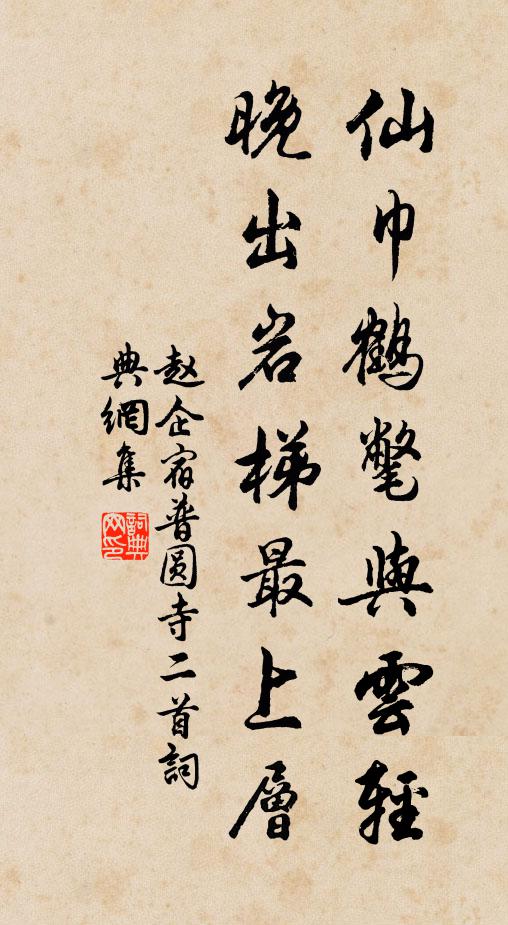 仙巾鶴氅與雲輕
晚出岩梯最上層
赵企宿普圆寺二首詞
典網集
詞典
网印